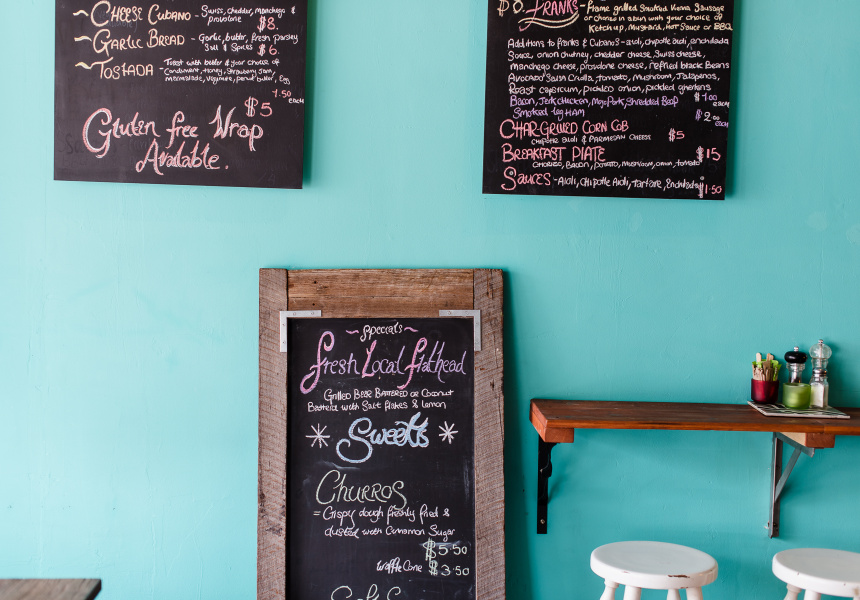 ~ Cheese Cubano - Swiss, cheddar, manchego &
provolone $8.
~ Garlic Bread - Garlic, butter, fresh parsley
Salt & Spices $6.
~ Tostada - Toast with butter & your choice of
- Condiment, Honey, Strawberry Jam,
marmalade, Vegemite, peanut butter, Egg
1.50
each
$5
Gluten free Wrap
Available.
$8. Franks - Flame grilled Smoked Vienna Sausage
or cheese in a bun with your choice of
Ketchup, Mustard, Hot Sauce or BBQ
Additions to franks & Cubano's - aioli, chipotle aioli, enchilada
Sauce, onion chutney, cheddar cheese, Swiss cheese,
manchego cheese, provolone cheese, refried black Beans
Avocado Salsa Cruda, tomato, Mushroom, Jalapenos,
Roast capsicum, pickled onion, pickled gherkins $1.00
each
Bacon, Jerk chicken, Mojo Pork, Shredded Beef
Smoked leg Ham $2.00
each
Char-Grilled Corn Cob $5
Chipotle aioli & Parmesan Cheese
Breakfast Plate $15
Chorizo, Bacon, potato, mushroom, onion, tomato
Sauces - Aioli, Chipotle Aioli, Tartare, Enchilada $1.50
~ Specials ~
Fresh Local flathead
Grilled Beer Battered or Coconut
Battered with Salt flakes & lemon
Sweets
Churros
= Crispy dough freshly fried &
dusted with Cinnamon Sugar
$5.50
Waffle Cone $3.50